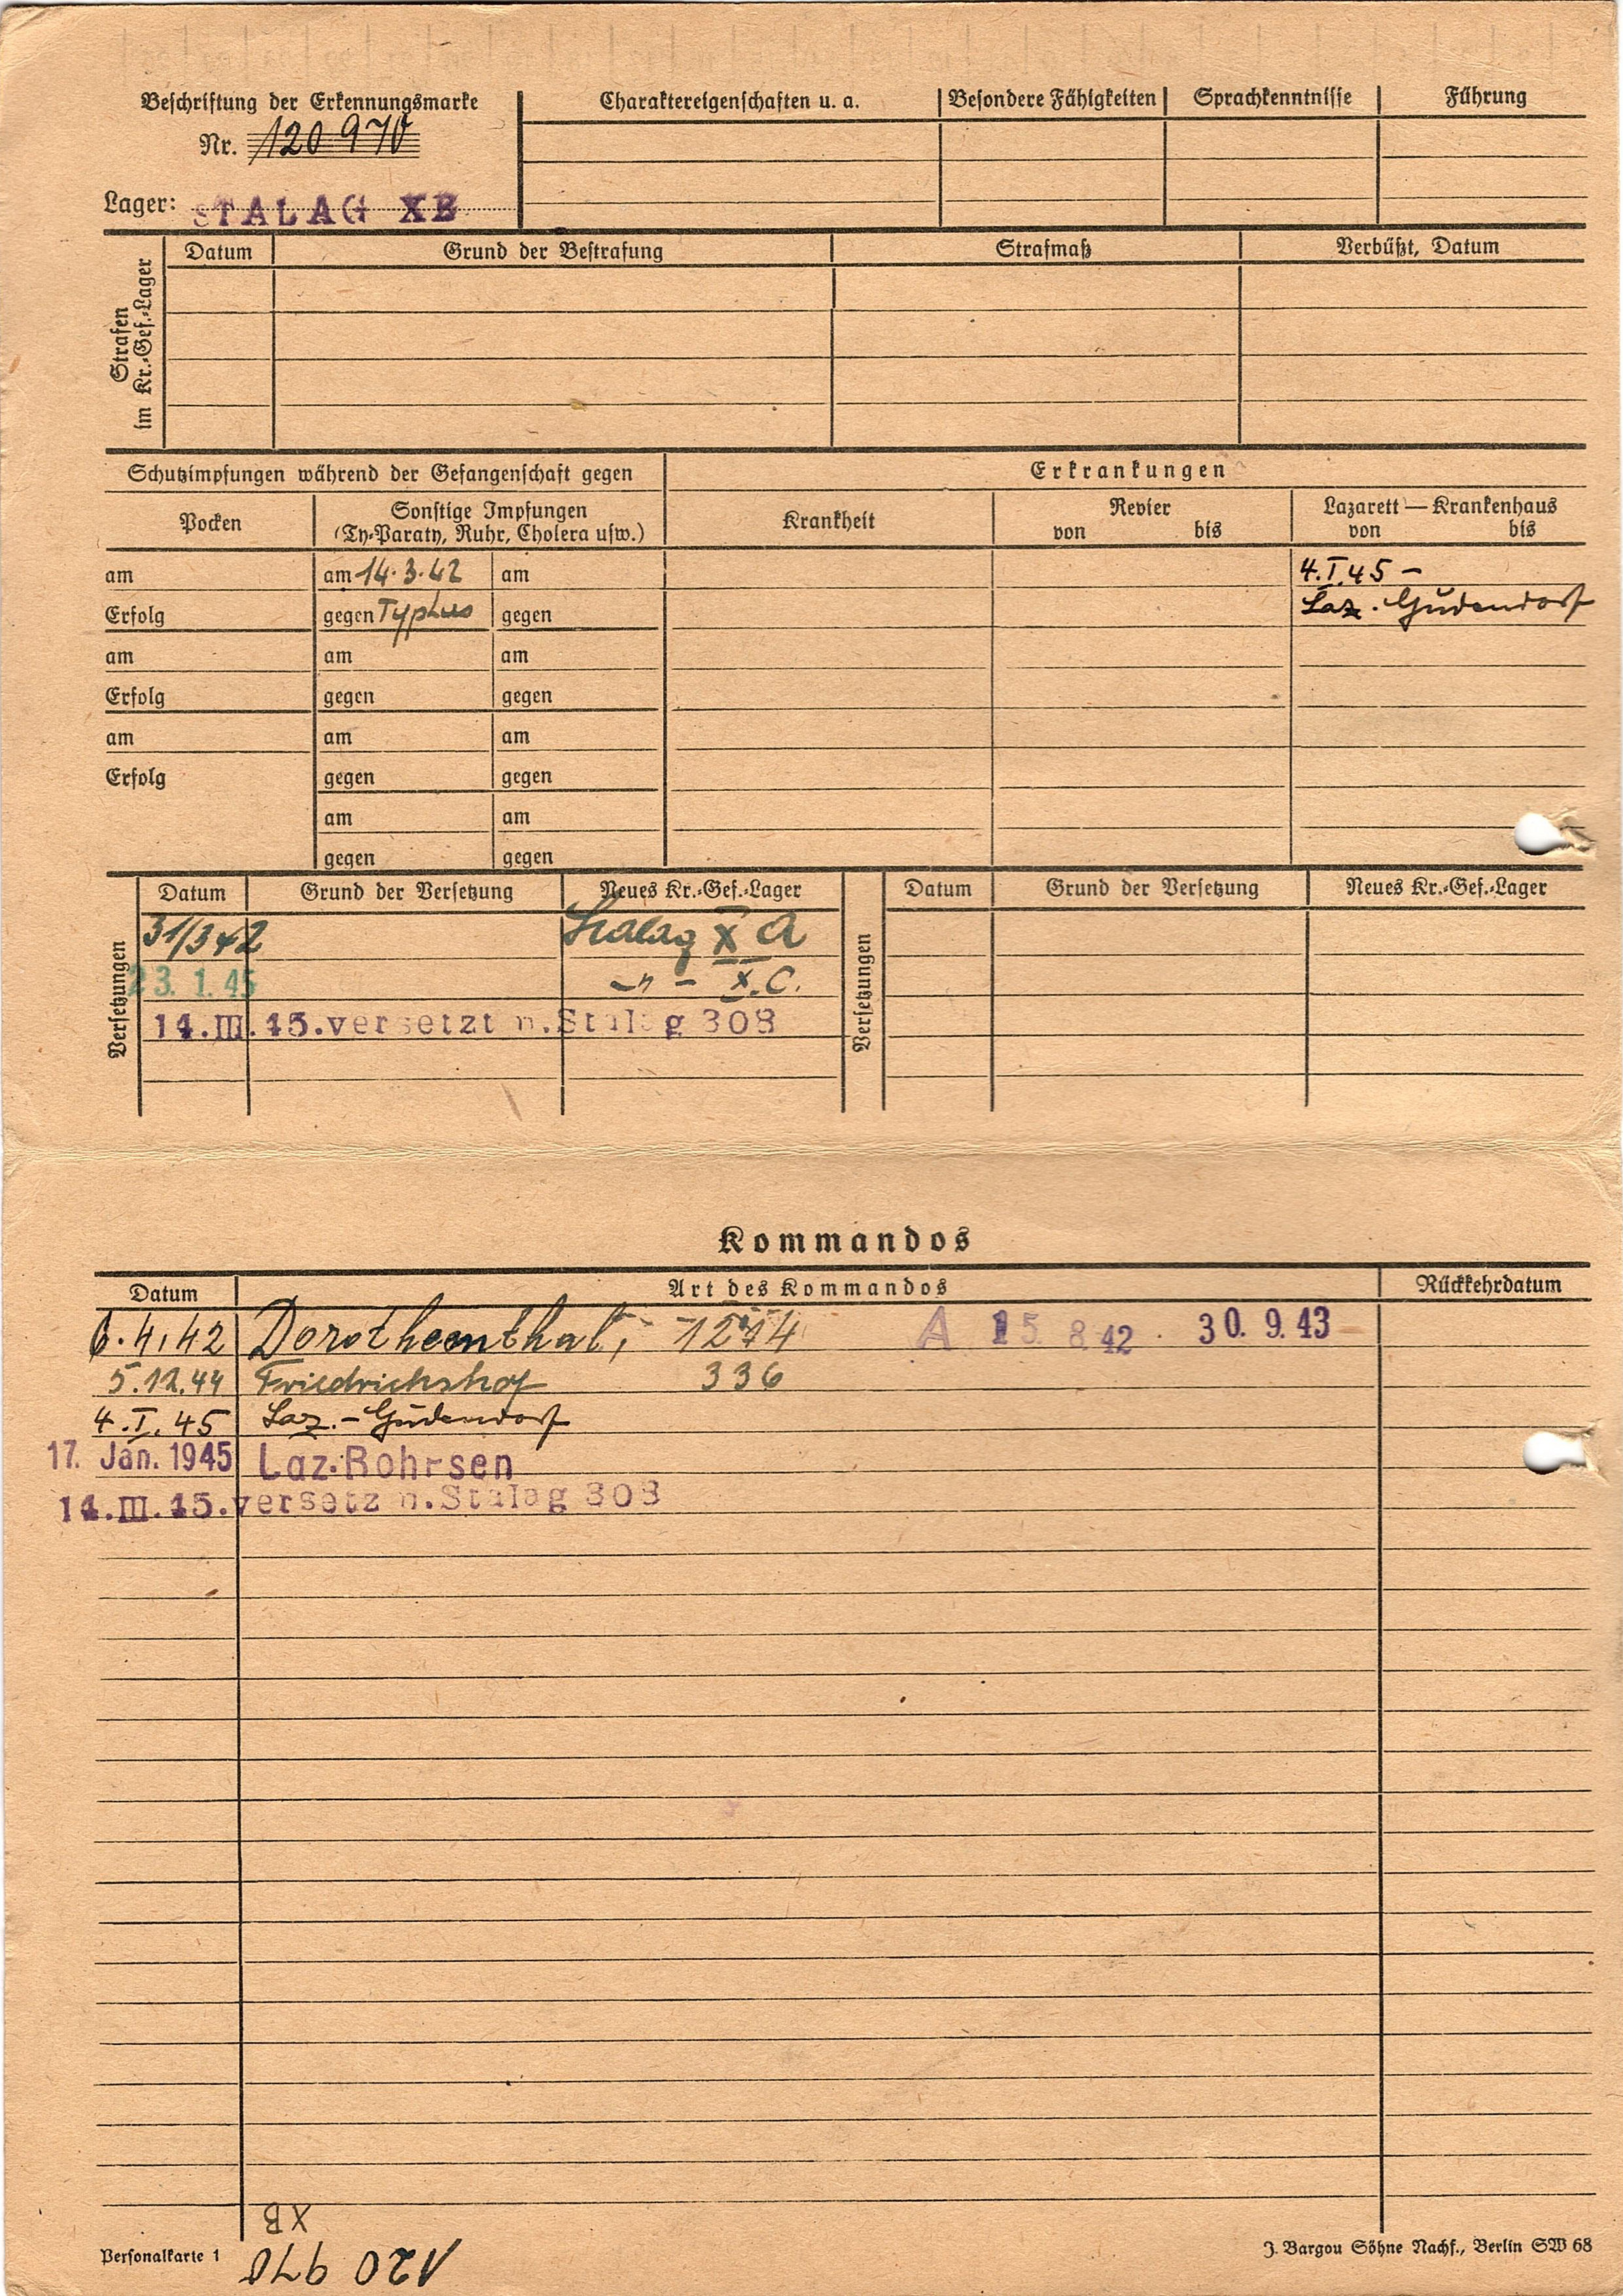 Beschriftung der Erkennungsmarke
Nr. 120970
Lager: STALAG XB
Charaktereigenschaften u. a. Besondere Fähigkeiten Sprachkenntnisse Führung
Strafen im Kr.-Gef.-Lager
Datum Grund der Bestrafung Strafmaß Verbüßt, Datum
Schutzimpfungen während der Gefangenschaft gegen Erkrankungen
Pocken Sonstige Impfungen Krankheit Revier Lazarett — Krankenhaus
(Ty-Paraty, Ruhr, Cholera usw.) von bis von bis
am am 14.3.42 am 4.I.45 –
Erfolg gegen Typhus gegen Laz. Gudendorf
am am am
Erfolg gegen gegen
am am am
Erfolg gegen gegen
am am
gegen gegen
Versetzungen
Datum Grund der Versetzung Neues Kr.-Gef.-Lager
31/3 42 Stalag X A
23. 1. 45 –"– X.C.
14.III.45. versetzt n. Stalag 308
Versetzungen
Datum Grund der Versetzung Neues Kr.-Gef.-Lager
Kommandos
Datum Art des Kommandos Rückkehrdatum
6.4.42 Dorotheenthal, 1274 A 15. 8. 42 . 30. 9. 43
5.12.44 Friedrichshof 336
4.I.45 Laz.-Gudendorf
17. Jan. 1945 Laz. Rohrsen
14.III.45. versetz n. Stalag 308
XB
120 970
Personalkarte 1
J. Bargou Söhne Nachf., Berlin SW 68